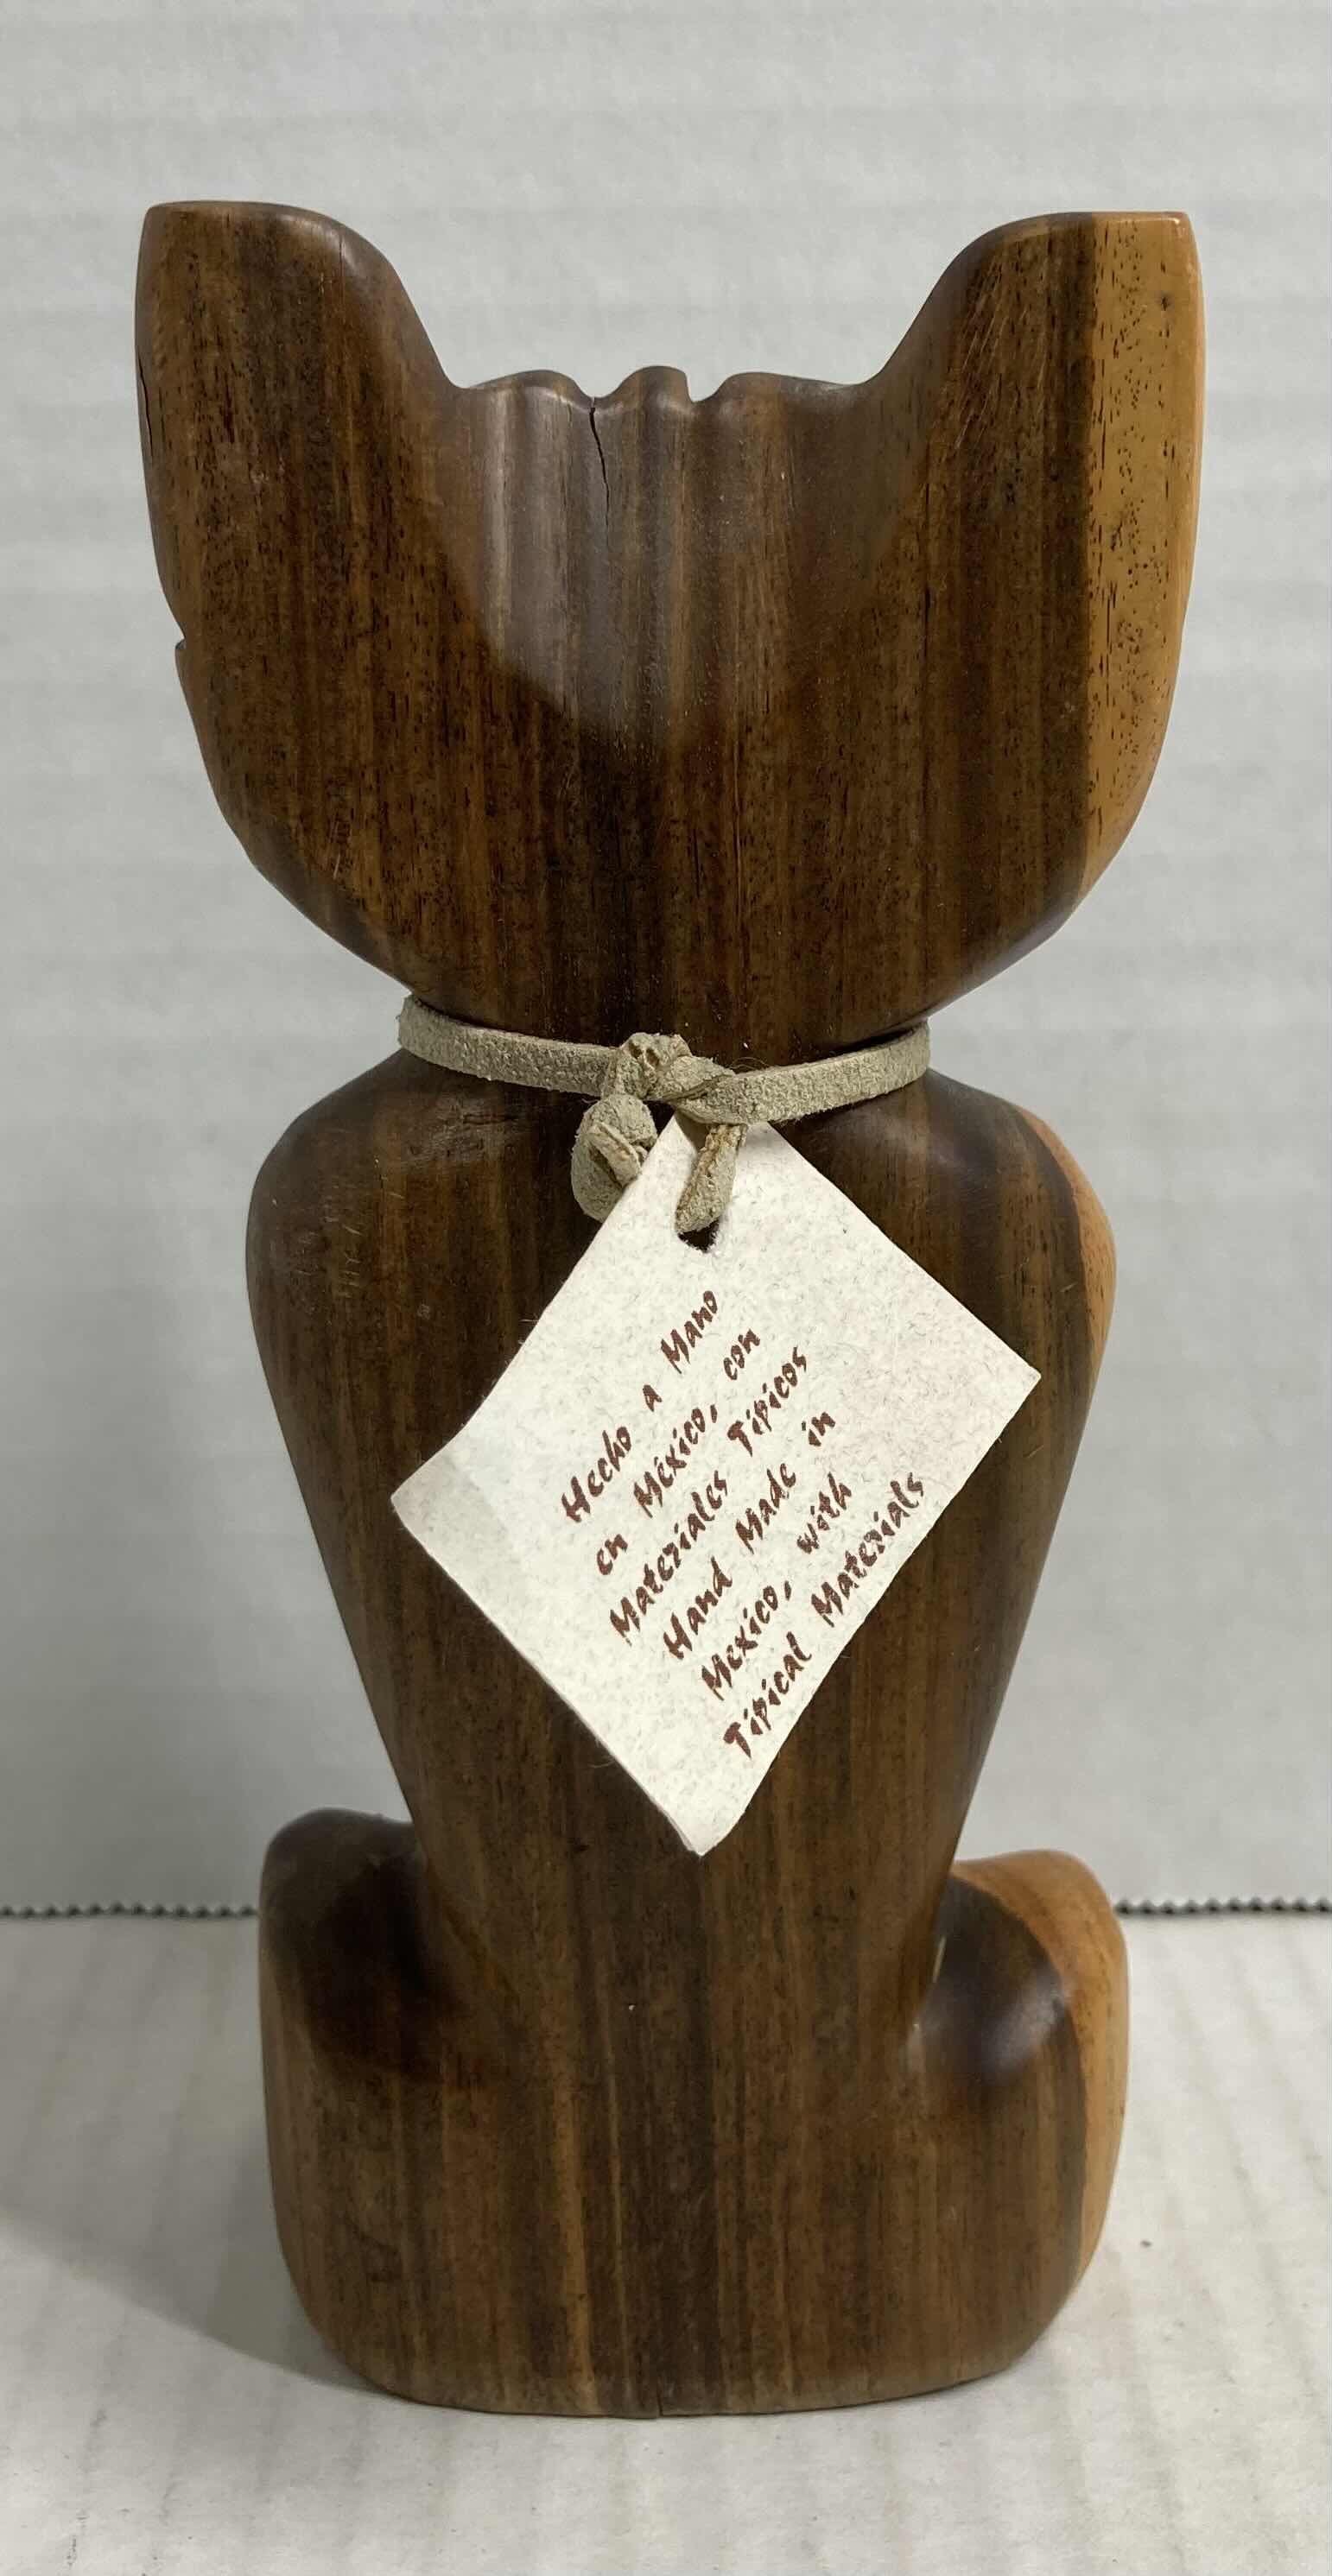 Hecho a Mano
en México, con
Materiales Tipicos
Hand Made in
Mexico, with
Tipical Materials